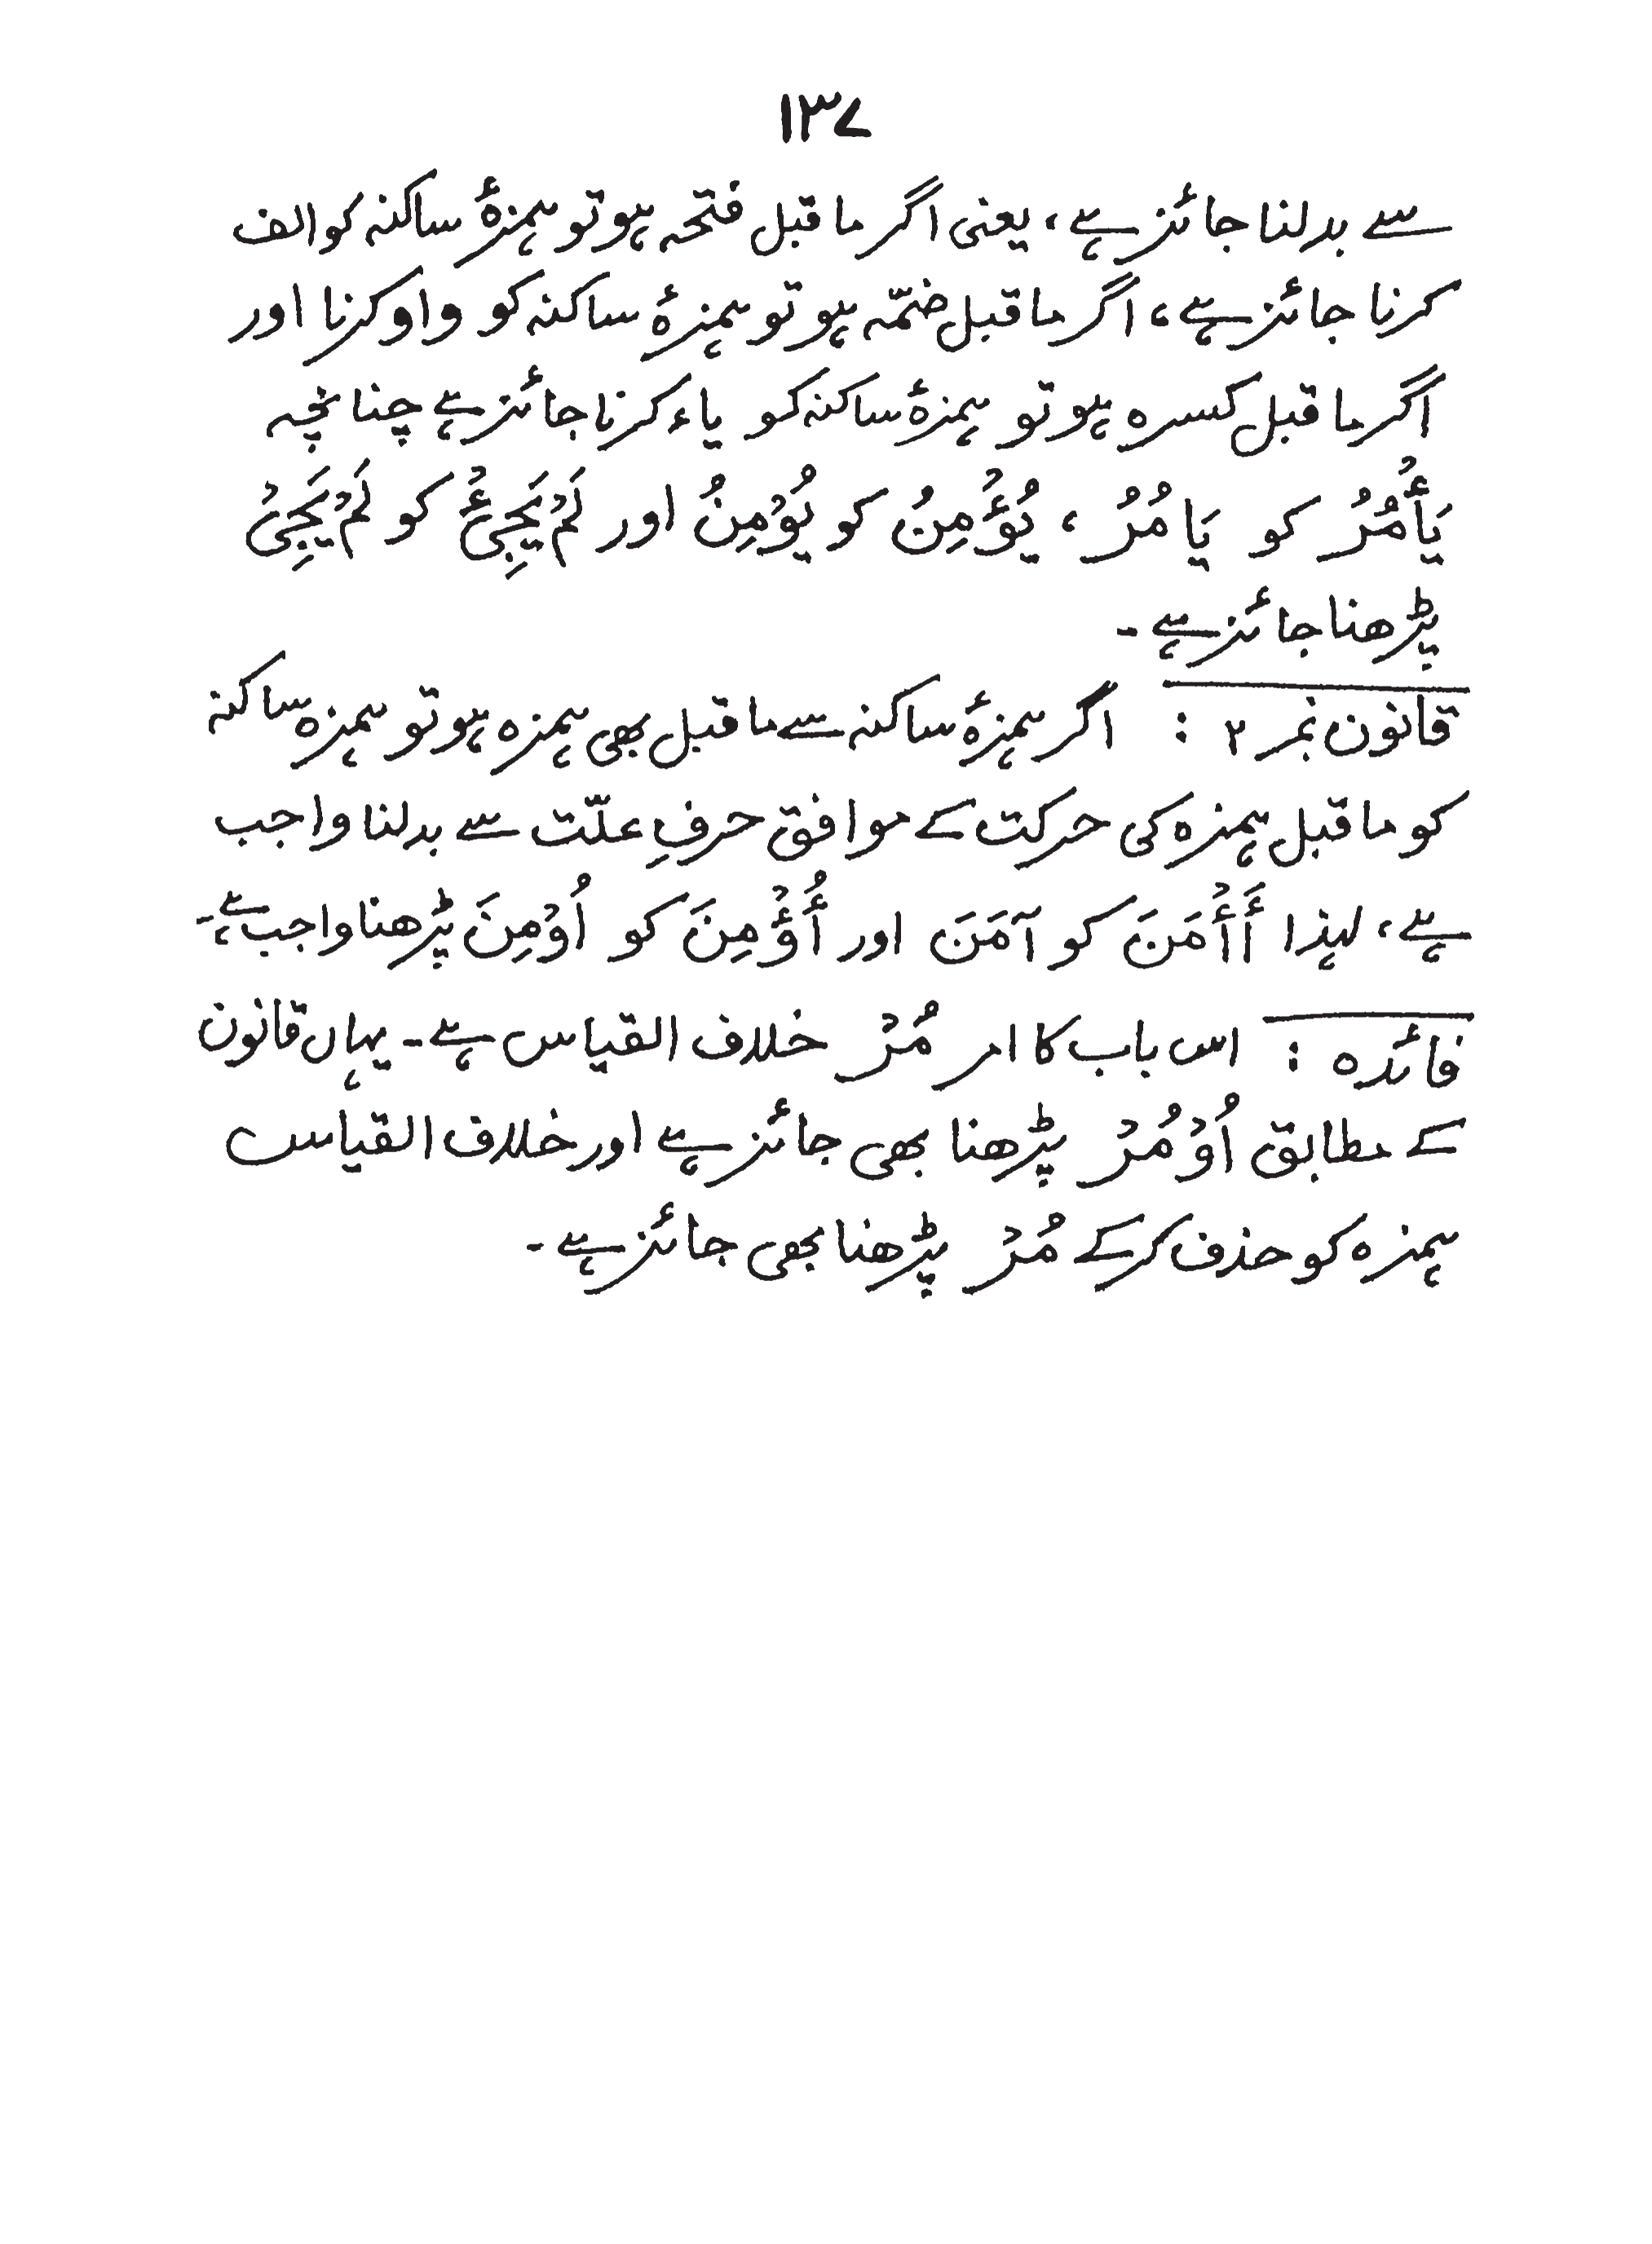 ۱۳۷
سے بدلنا جائز ہے، یعنی اگر ماقبل فتحہ ہو تو ہمزۂ ساکنہ کو الف
کرنا جائز ہے، اگر ماقبل ضمّہ ہو تو ہمزۂ ساکنہ کو واو کرنا اور
اگر ماقبل کسرہ ہو تو ہمزۂ ساکنہ کو یاء کرنا جائز ہے چنانچہ
يَأْمُرُ کو يَامُرُ ، يُؤْمِنُ کو يُوْمِنُ اور لَمْ يَجِئْ کو لَمْ يَجِيْ
پڑھنا جائز ہے۔
قانون نمبر ۲ : اگر ہمزۂ ساکنہ سے ماقبل بھی ہمزہ ہو تو ہمزہ ساکنہ
کو ماقبل ہمزہ کی حرکت کے موافق حرفِ علّت سے بدلنا واجب
ہے، لہذا أَأْمَنَ کو آمَنَ اور أُؤْمِنَ کو اُوْمِنَ پڑھنا واجب ہے۔
فائدہ : اس باب کا امر مُرْ خلاف القیاس ہے۔ یہاں قانون
کے مطابق اُوْمُرْ پڑھنا بھی جائز ہے اور خلاف القیاس
ہمزہ کو حذف کرکے مُرْ پڑھنا بھی جائز ہے۔